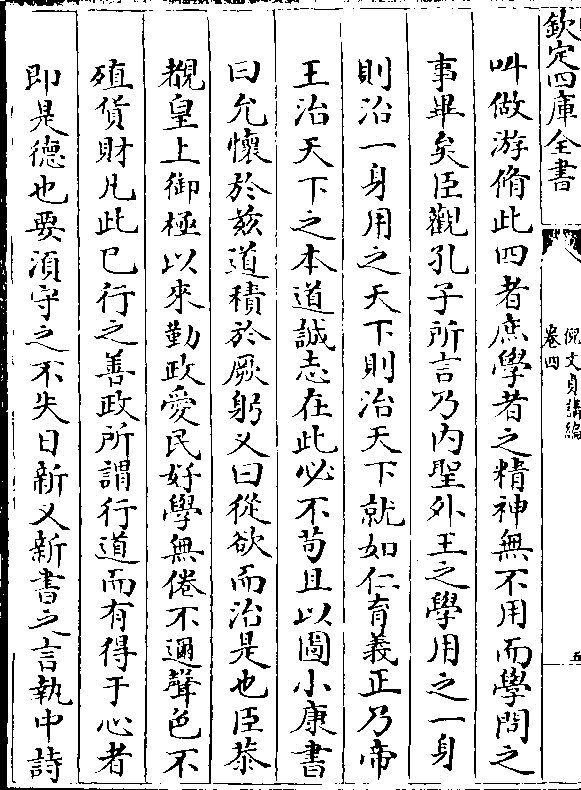 欽定四庫全書
倪文貞講編
卷四
五
叫做游脩此四者庶學者之精神無不用而學問之
事畢矣臣觀孔子所言乃内聖外王之學用之一身
則治一身用之天下則治天下就如仁育義正乃帝
王治天下之本道誠志在此必不苟且以圖小康書
曰允懷於茲道積於厥躬又曰從欲而治是也臣恭
覩皇上御極以來勤政愛民好學無倦不邇聲色不
殖貨財凡此已行之善政所謂行道而有得于心者
即是德也要須守之不失日新又新書之言執中詩